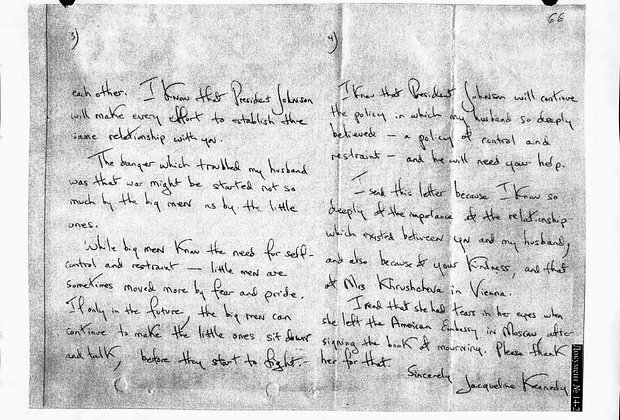 66
3)
each other. I know that President Johnson
will make every effort to establish the
same relationship with you.
The danger which troubled my husband
was that war might be started not so
much by the big men as by the little
ones.
While big men know the need for self-
control and restraint — little men are
sometimes moved more by fear and pride.
If only in the future, the big men can
continue to make the little ones sit down
and talk, before they start to fight.—
4)
I know that President Johnson will continue
the policy in which my husband so deeply
believed — a policy of control and
restraint — and he will need your help.
I send this letter because I know so
deeply of the importance of the relationship
which existed between you and my husband,
and also because of your kindness, and that
of Mrs Khrushcheva in Vienna.
I read that she had tears in her eyes when
she left the American Embassy in Moscow after
signing the book of mourning. Please thank
her for that.
Sincerely
Jacqueline Kennedy
Документ № 14-2